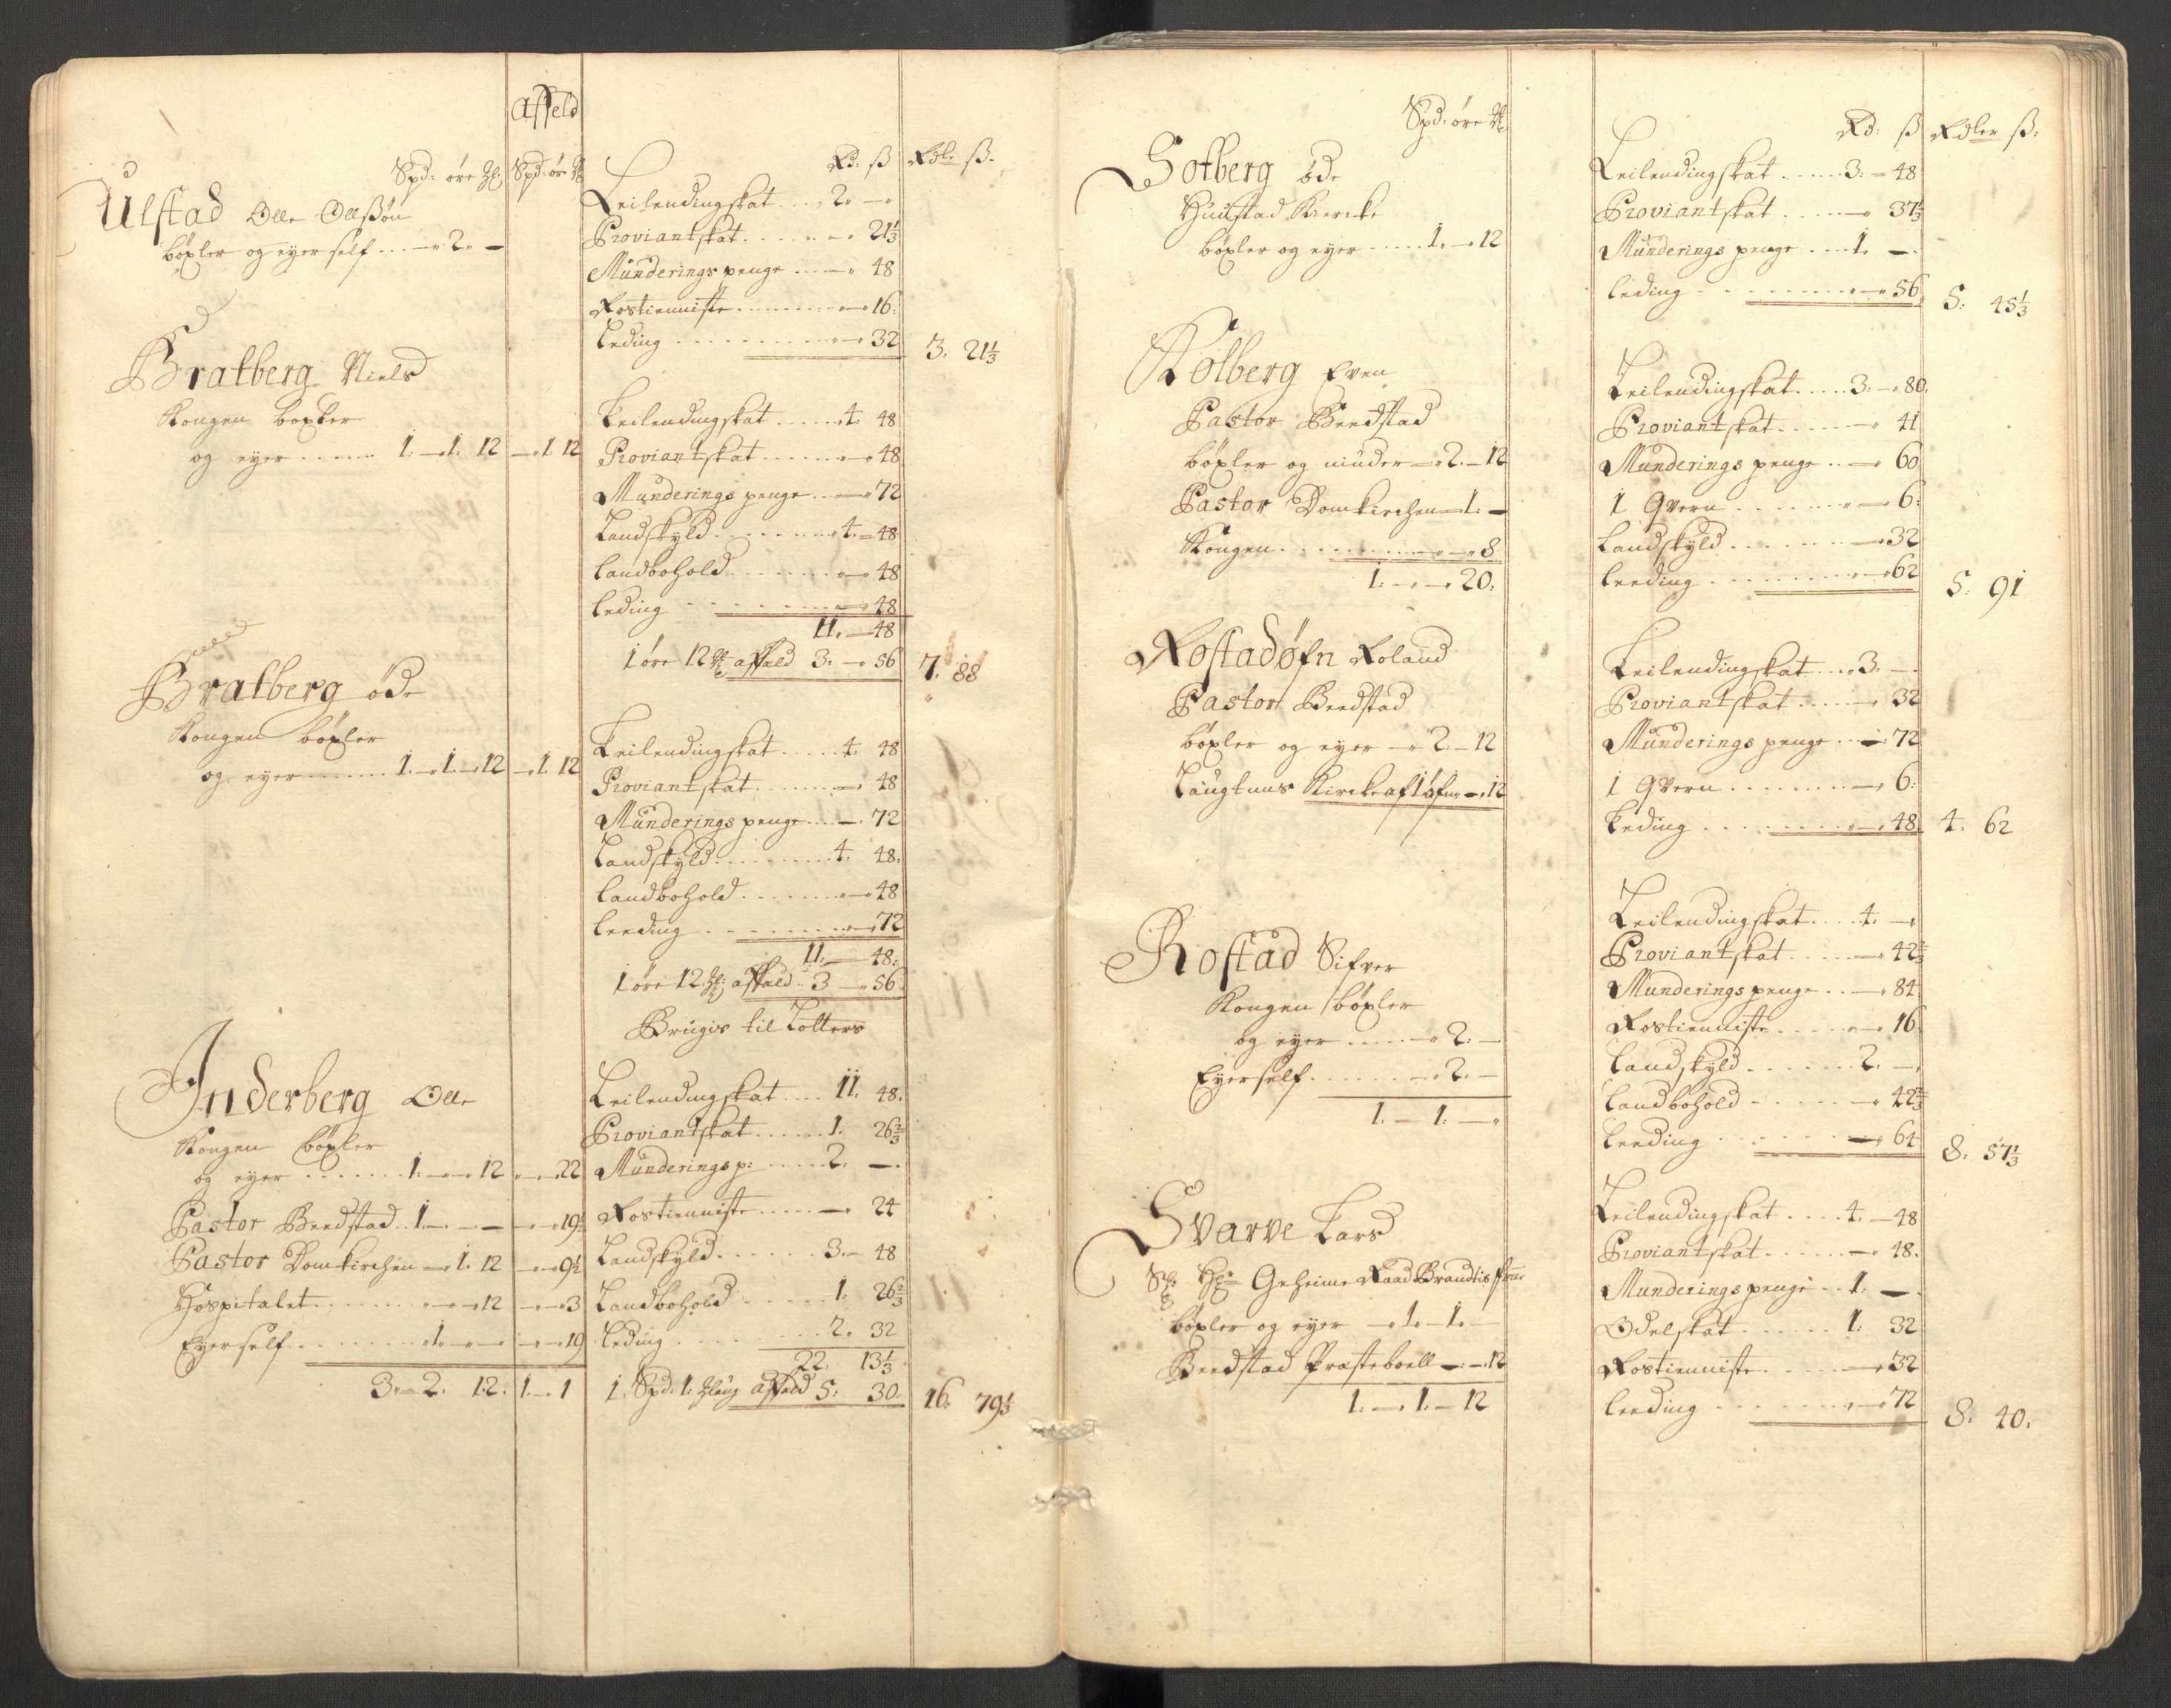 Affeld
Spd: øre Spd: øre Rd: ß Rdlr ß.
Ulstad Olle Olßøn
bøxler og eyer self - 2 -
Leilendingskat 2. -
Proviantskat - 21⅓
Munderings penge - 48
Rostienniste - 16.
leding - 32 3. 21⅓
Bratberg Niels
Kongen boxler
og eyer 1. - 1. 12 - 1 12
Leilendingskat 4. 48
Proviantskat - 48
Munderings penge - 72
Landskyld 4. - 48
landbohold - 48
leding - 48
11. - 48
1 øre 12 affald 3. - 56 7. 88
Bratberg øde
Kongen bøxler
og eyer 1. - 1. - 12 - 1. 12
Leilendingskat 4. 48
Proviantskat - 48
Munderings penge - 72
Landskyld 4. 48.
landbohold - 48
leeding - 72
11. - 48.
1 øre 12 affald 3 - 56.
Brugis til Totters
Inderberg Olle
Kongen bøxler
og eyer 1. - - 12 - - 22
Pastor Beedstad 1. - - - - 19½
Pastor Domkirchen - 1. 12 - - 9½
Hospitalet - - 12 - - 3
Eyer self - 1. - - - 19
3. - 2. 12. 1. - 1
Leilendingskat 11. 48.
Proviantskat 1. 26⅔
Munderings p: 2. -.
Rostienniste - 24
Landskyld 3. - 48
Landbohold 1. 26⅔
leding 2. 32
22. 13⅓
1. Spd. 1. affald 5: 30. 16. 79⅓
Spd: øre Rd: ß Rdler ß:
Solberg øde
Hustad Kiercke
bøxler og eyer 1. - 12
Leilendingskat 3. - 48
Proviantskat - 37⅓
Munderings penge 1. -.
leding - 56 5. 45⅓
Kolberg Even
Pastor Beedstad
bøxler og minder - 2. - 12
Pastor Domkirchen - 1. -
Kongen - - 8
1. - - 20.
Leilendingskat 3. - 80.
Proviantskat - 41
Munderings penge - 60
1 qvern - 6.
Landskyld - 32
leeding - 62 5. 91
Rostadøfn Roland
Pastor Beedstad
bøxler og eyer - 2. - 12
Laugtuns Kircke af 1 øfn - 12
Leilendingskat 3. -.
Proviantskat - 32
Munderings penge - 72
1 qvern - 6.
leding - 48 4. 62
Rostad Sifver
Kongen bøxler
og eyer - 2. -
Eyer self - 2. -
1. - 1. -
Leilendingskat 4. -
Proviantskat - 42⅔
Munderings penge - 84
Rostienniste - 16.
Landskyld 2. -.
landbohold - 42⅔
leeding - 64 8. 57⅓
Svarve Lars
Sl: Hr: Geheime Raad Brandtis frue
bøxler og eyer - 1. - 1. -
Beedstad Præsteboell - - 12
1. - 1. - 12
Leilendingskat 4. - 48
Proviantskat - 48.
Munderings penge 1. -.
Odelskat 1. 32
Rostienniste - 32
leeding - 72 8. 40.